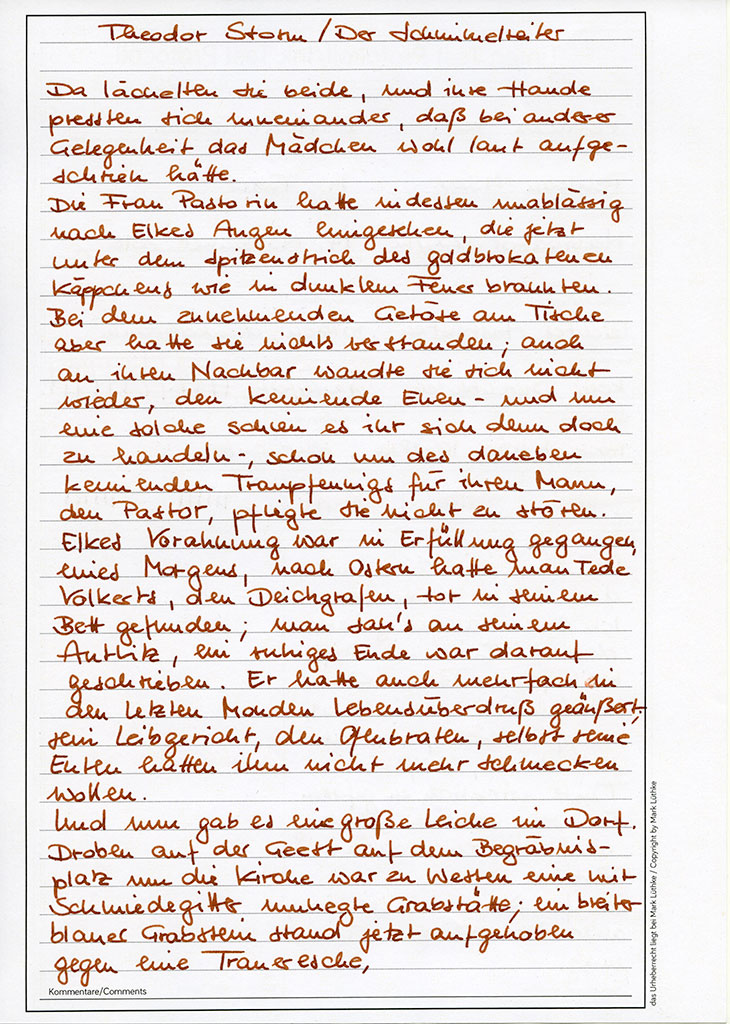 Theodor Storm / Der Schimmelreiter
Da lächelten sie beide, und ihre Hande
pressten sich ineinander, daß bei anderer
Gelegenheit das Mädchen wohl laut aufge-
schrien hätte.
Die Frau Pastorin hatte indessen unablässig
nach Elkes Augen hingesehen, die jetzt
unter dem spitzenstrich des goldbrokatenen
Käppchens wie in dunklem Feuer brannten.
Bei dem zunehmenden Getöse am Tische
aber hatte sie nichts verstanden; auch
an ihren Nachbar wandte sie sich nicht
wieder, den keimende Ehen - und um
eine solche schien es ihr sich denn doch
zu handeln -, schon um des daneben
keimenden Traupfennigs für ihren Mann,
den Pastor, pflegte sie nicht zu stören.
Elkes Vorahnung war in Erfüllung gegangen,
eines Morgens, nach Ostern hatte man Tede
Volkerts, den Deichgrafen, tot in seinem
Bett gefunden; man sah's an seinem
Antlitz, ein ruhiges Ende war darauf
geschrieben. Er hatte auch mehrfach in
den letzten Monden Lebensüberdruß geäußert,
sein Leibgericht, den Ofenbraten, selbst seine
Enten hatten ihm nicht mehr schmecken
wollen.
Und nun gab es eine große Leiche im Dorf.
Droben auf der Geest auf dem Begräbnis-
platz um die Kirche war zu Westen eine mit
Schmiedegitter umhegte Grabstätte; ein breiter
blauer Grabstein stand jetzt aufgehoben
gegen eine Traueresche,
Kommentare/Comments
das Urheberrecht liegt bei Mark Lüthke / Copyright by Mark Lüthke